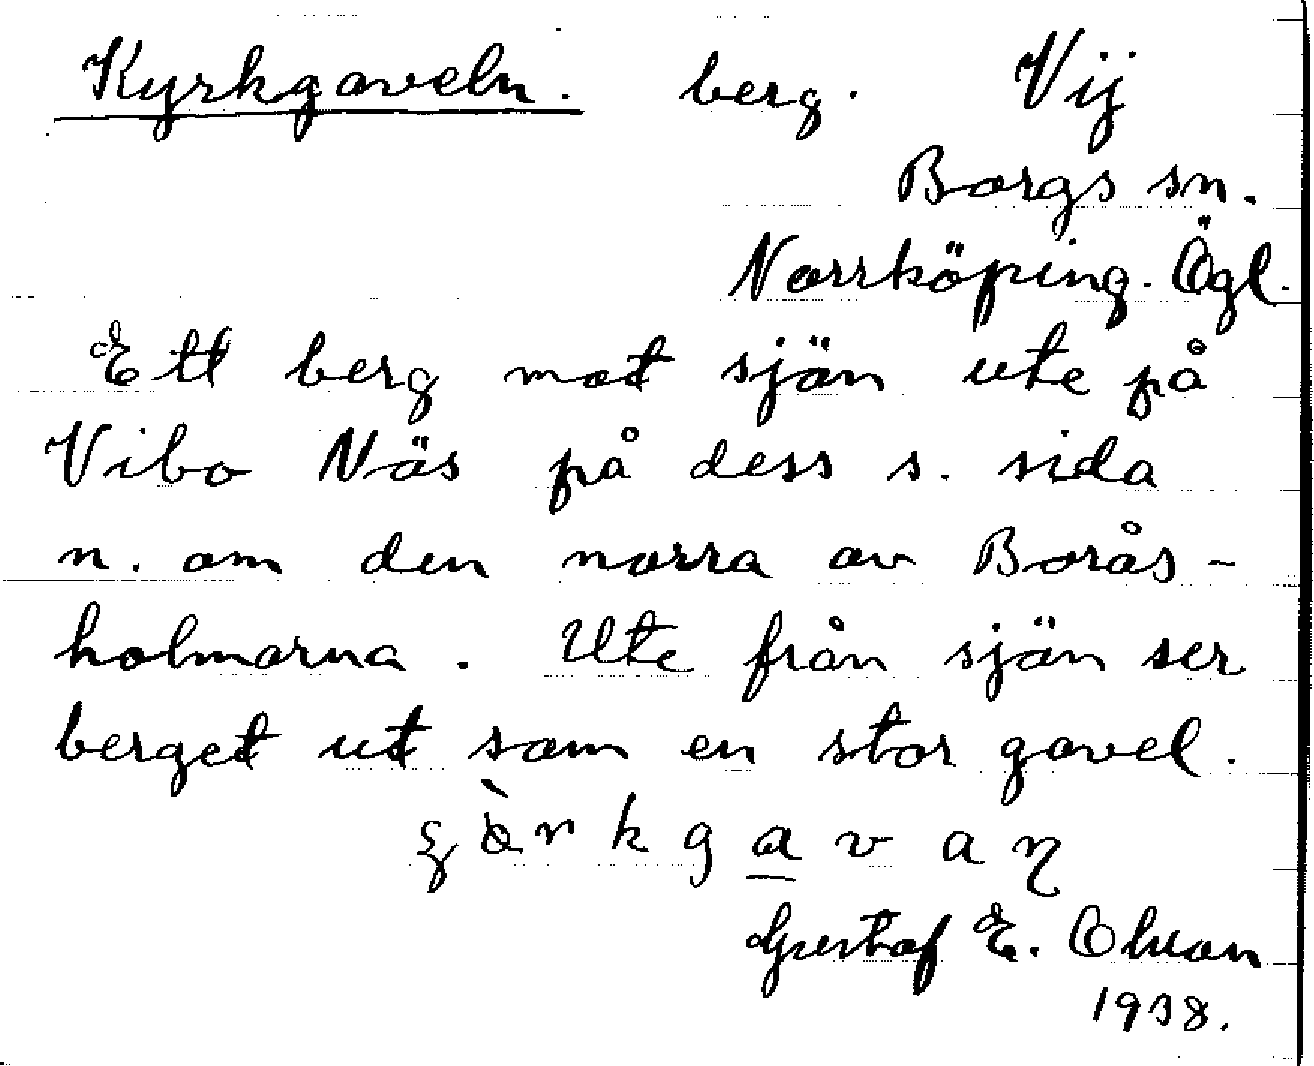 Kyrkgaveln. berg. Vij
Borgs sn.
Norrköping. Ögl.
Ett berg mot sjön ute på
Vibo Näs på dess s. sida
n. om den norra av Borås-
holmarna. Ute från sjön ser
berget ut som en stor gavel.
Gustaf E. Olson
1938.